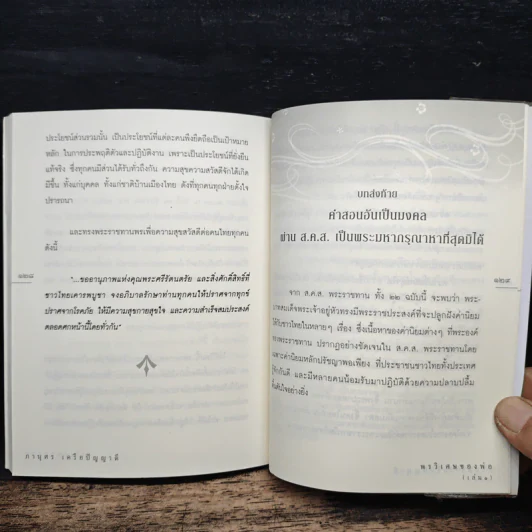 ประโยชน์ส่วนรวมนั้น เป็นประโยชน์ที่แต่ละคนพึงยึดถือเป็นเป้าหมาย
หลัก ในการประพฤติตัวและปฏิบัติงาน เพราะเป็นประโยชน์ที่ยั่งยืน
แท้จริง ซึ่งทุกคนมีส่วนได้รับทั่วถึงกัน ความสุขความสวัสดีจักได้เกิด
มีขึ้น ทั้งแก่บุคคล ทั้งแก่ชาติบ้านเมืองไทย ดังที่ทุกคนทุกฝ่ายตั้งใจ
ปรารถนา
และทรงพระราชทานพรเพื่อความสุขสวัสดีต่อคนไทยทุกคน
ดังนี้
๑๒๘
"...ขออานุภาพแห่งคุณพระศรีรัตนตรัย และสิ่งศักดิ์สิทธิ์ที่
ชาวไทยเคารพบูชา จงอภิบาลรักษาท่านทุกคนให้ปราศจากทุกข์
ปราศจากโรคภัย ให้มีความสุขกายสุขใจ และความสำเร็จสมประสงค์
ตลอดศกหน้านี้โดยทั่วกัน"
ภาณุตร เตวีสปัญญาดี
บทส่งท้าย
คำสอนอันเป็นมงคล
ผ่าน ส.ค.ส. เป็นพระมหากรุณาหาที่สุดมิได้
๑๒๙
จาก ส.ค.ส. พระราชทาน ทั้ง ๒๒ ฉบับนี้ จะพบว่า พระ-
บาทสมเด็จพระเจ้าอยู่หัวทรงมีพระราชประสงค์ที่จะปลูกฝังค่านิยม
ให้กับชาวไทยในหลายๆ เรื่อง ซึ่งเนื้อหาของค่านิยมต่างๆ ที่พระองค์
พระราชทาน ปรากฏอย่างชัดเจนใน ส.ค.ส. พระราชทานโดย
เฉพาะค่านิยมหลักปรัชญาพอเพียง ที่ประชาชนชาวไทยทั้งประเทศ
รู้จักกันดี และมีหลายคนน้อมรับมาปฏิบัติด้วยความปลาบปลื้ม
ใจอย่างยิ่ง
พรวิเศษของพ่อ
(เล่ม๑)